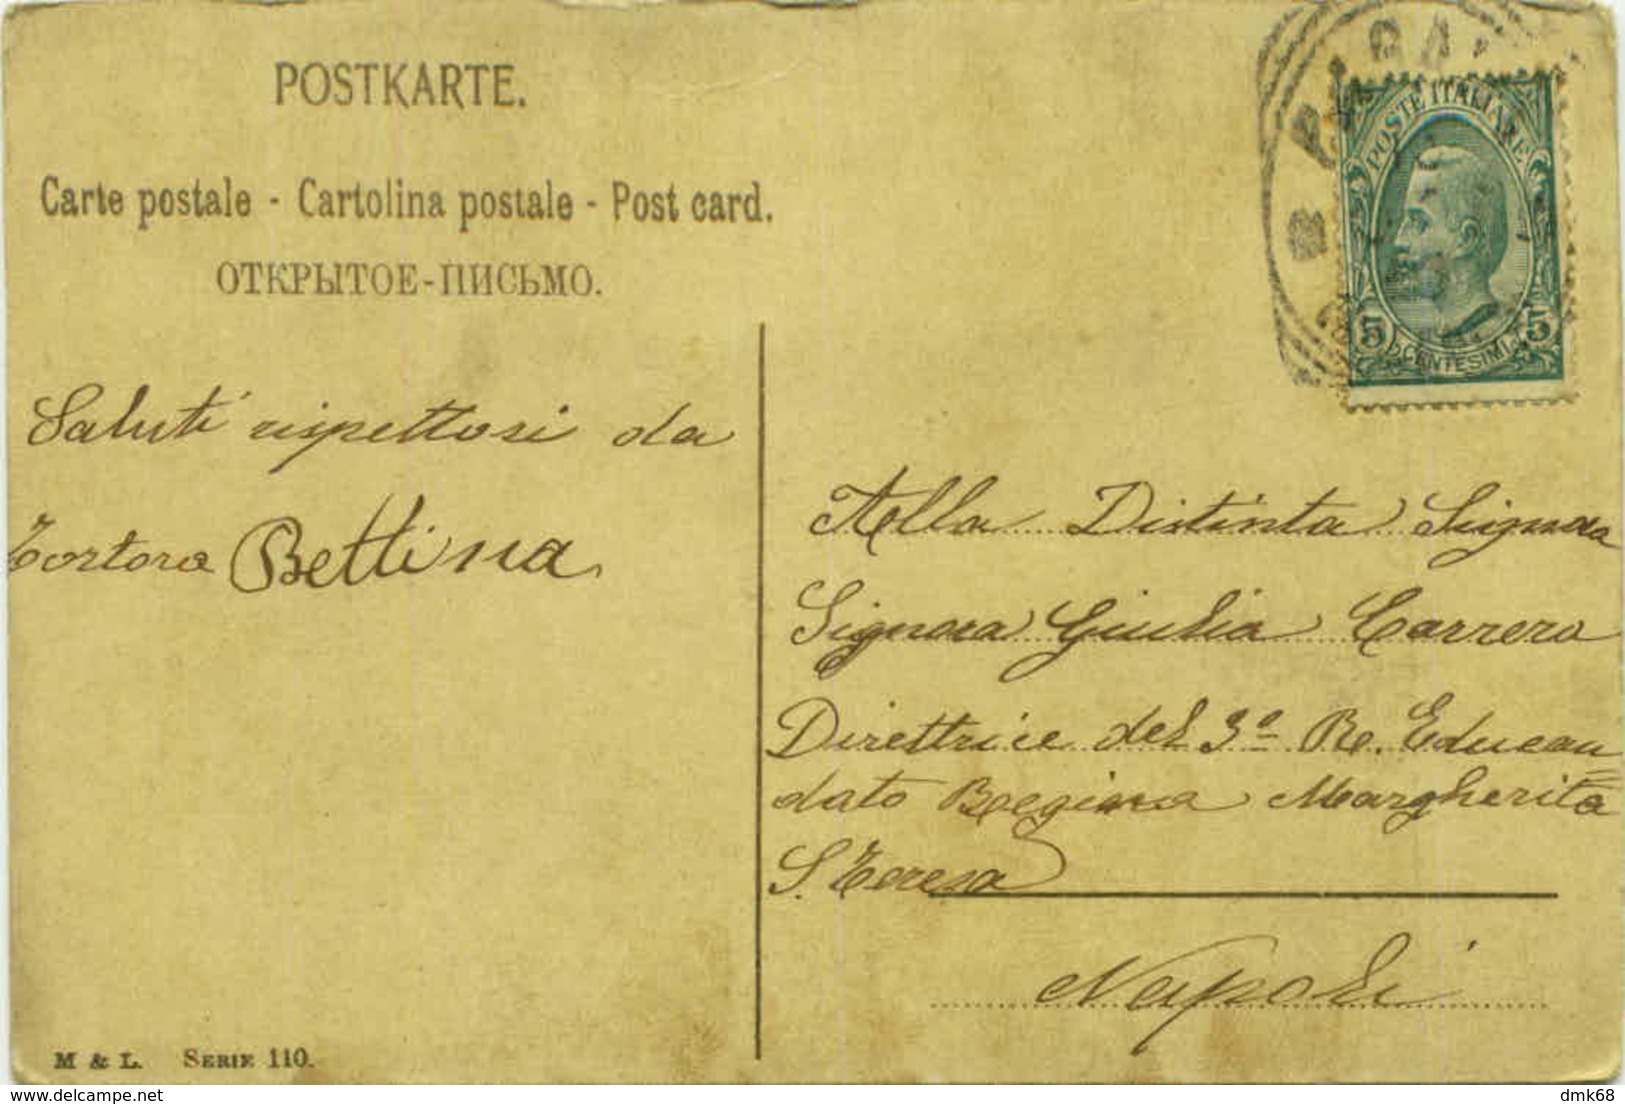 POSTKARTE.
Carte postale - Cartolina postale - Post card.
ОТКРЫТОЕ-ПИСЬМО.
POSTE ITALIANE
5 CENTESIMI 5
Saluti rispettosi da
Tortora Bettina
Alla Distinta Signora
Signora Giulia Carrera
Direttrice del 3º Re. Educan
dato Regina Margherita
S. Teresa
Napoli
M & L. SERIE 110.
dmk68